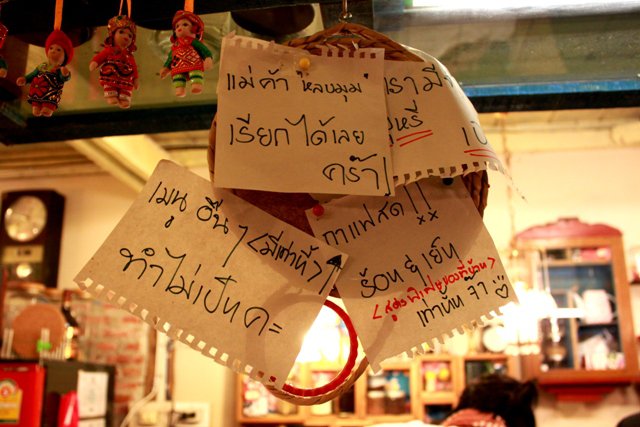 แม่ค้า "หลบมุม"
เรียกได้เลย
คร้า!
เรามี
หรี่
เมนู อื่น ๆ <มีเท่านี้>
ทำไม่เป็นคะ
กาแฟสด!!
ร้อน & เย็น
เท่านั้น จ้า